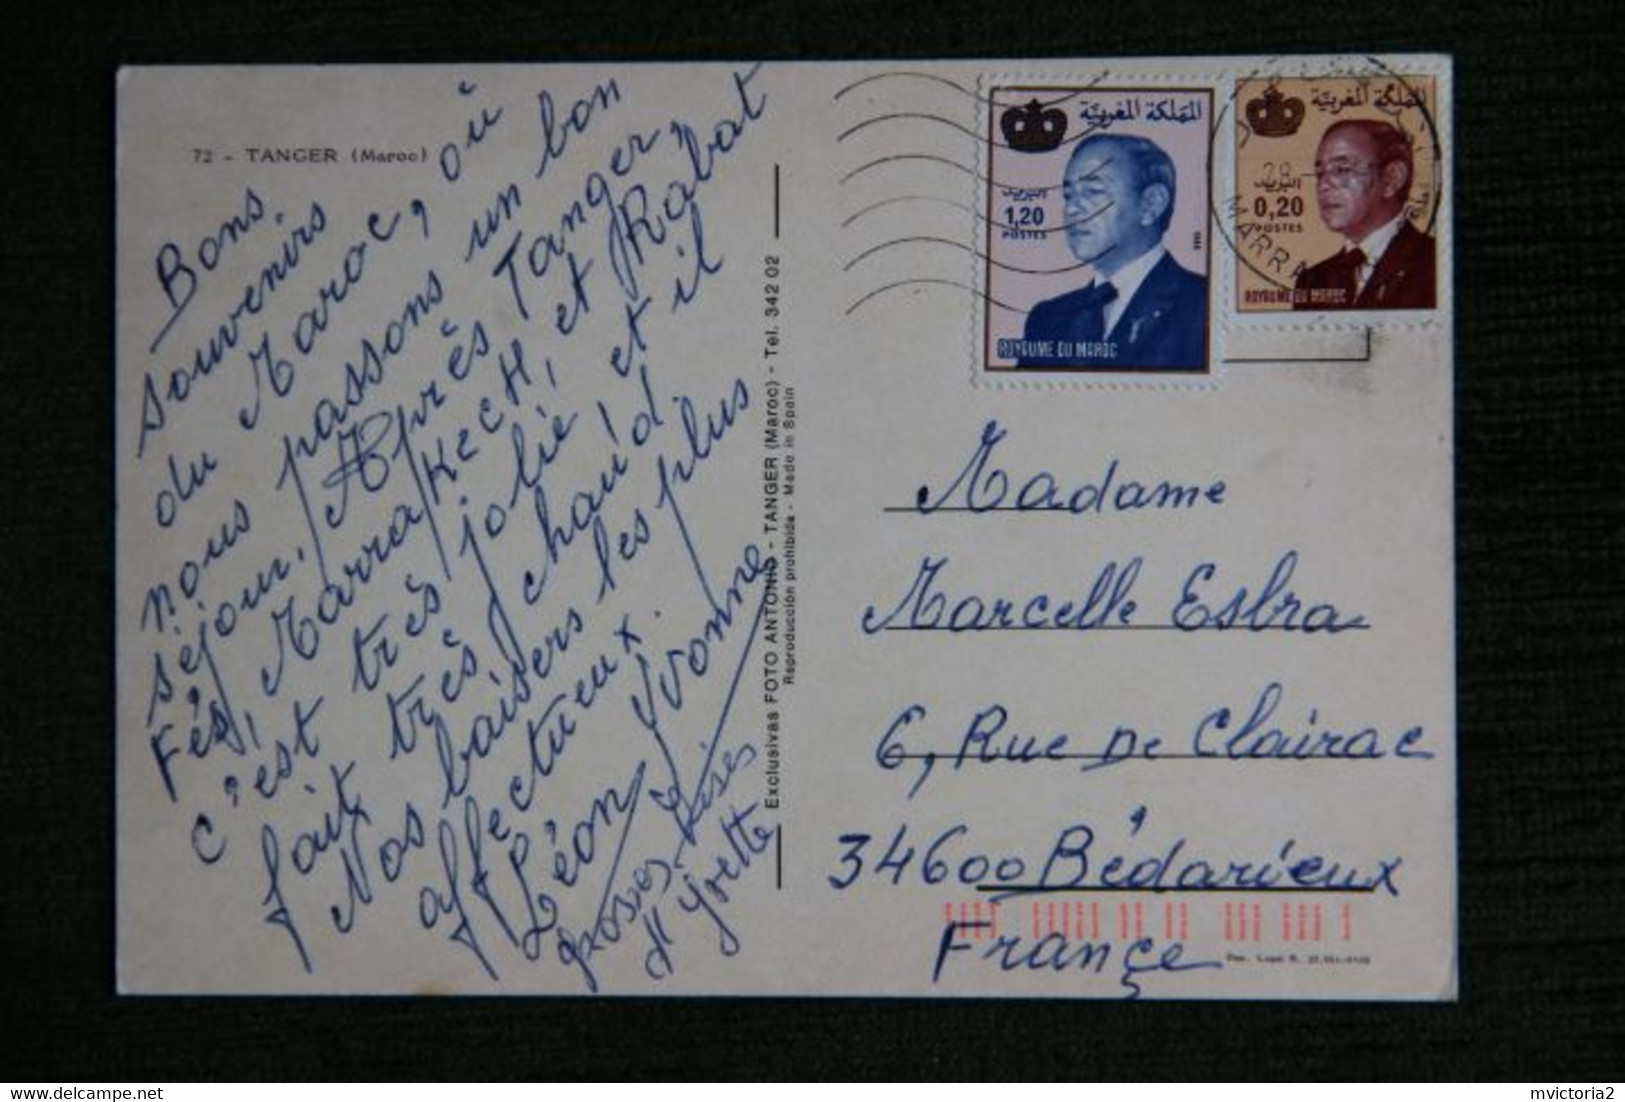 72 - TANGER (Maroc)
Bons
souvenirs
du Maroc, où
nous passons un bon
séjour. Après Tanger,
Fés, Marrakech, et Rabat
c'est très jolie, et il
fait très chaud
Nos baisers les plus
affectueux.
Léon Yvonne
grosses bises
d'Yvette
Exclusivas FOTO ANTONIO - TANGER (Maroc) - Tel. 342 02
Reproducción prohibida - Made in Spain
المملكة المغربية
البريد
1,20
POSTES
ROYAUME DU MAROC
المملكة المغربية
البريد
0,20
POSTES
ROYAUME DU MAROC
28
MARRA
Madame
Marcelle Esbra
6, Rue De Clairac
34600 Bédarieux
Françe
mvictoria2